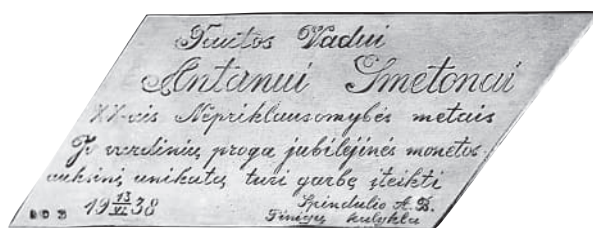 Tautos Vadui
Antanui Smetonai
XX-ais Nepriklausomybės metais
Jo vardinių proga jubiliejinės monetos
auksinį unikatą turi garbę įteikti
1938 13/VI Spindulio A.B.
Pinigų kalykla